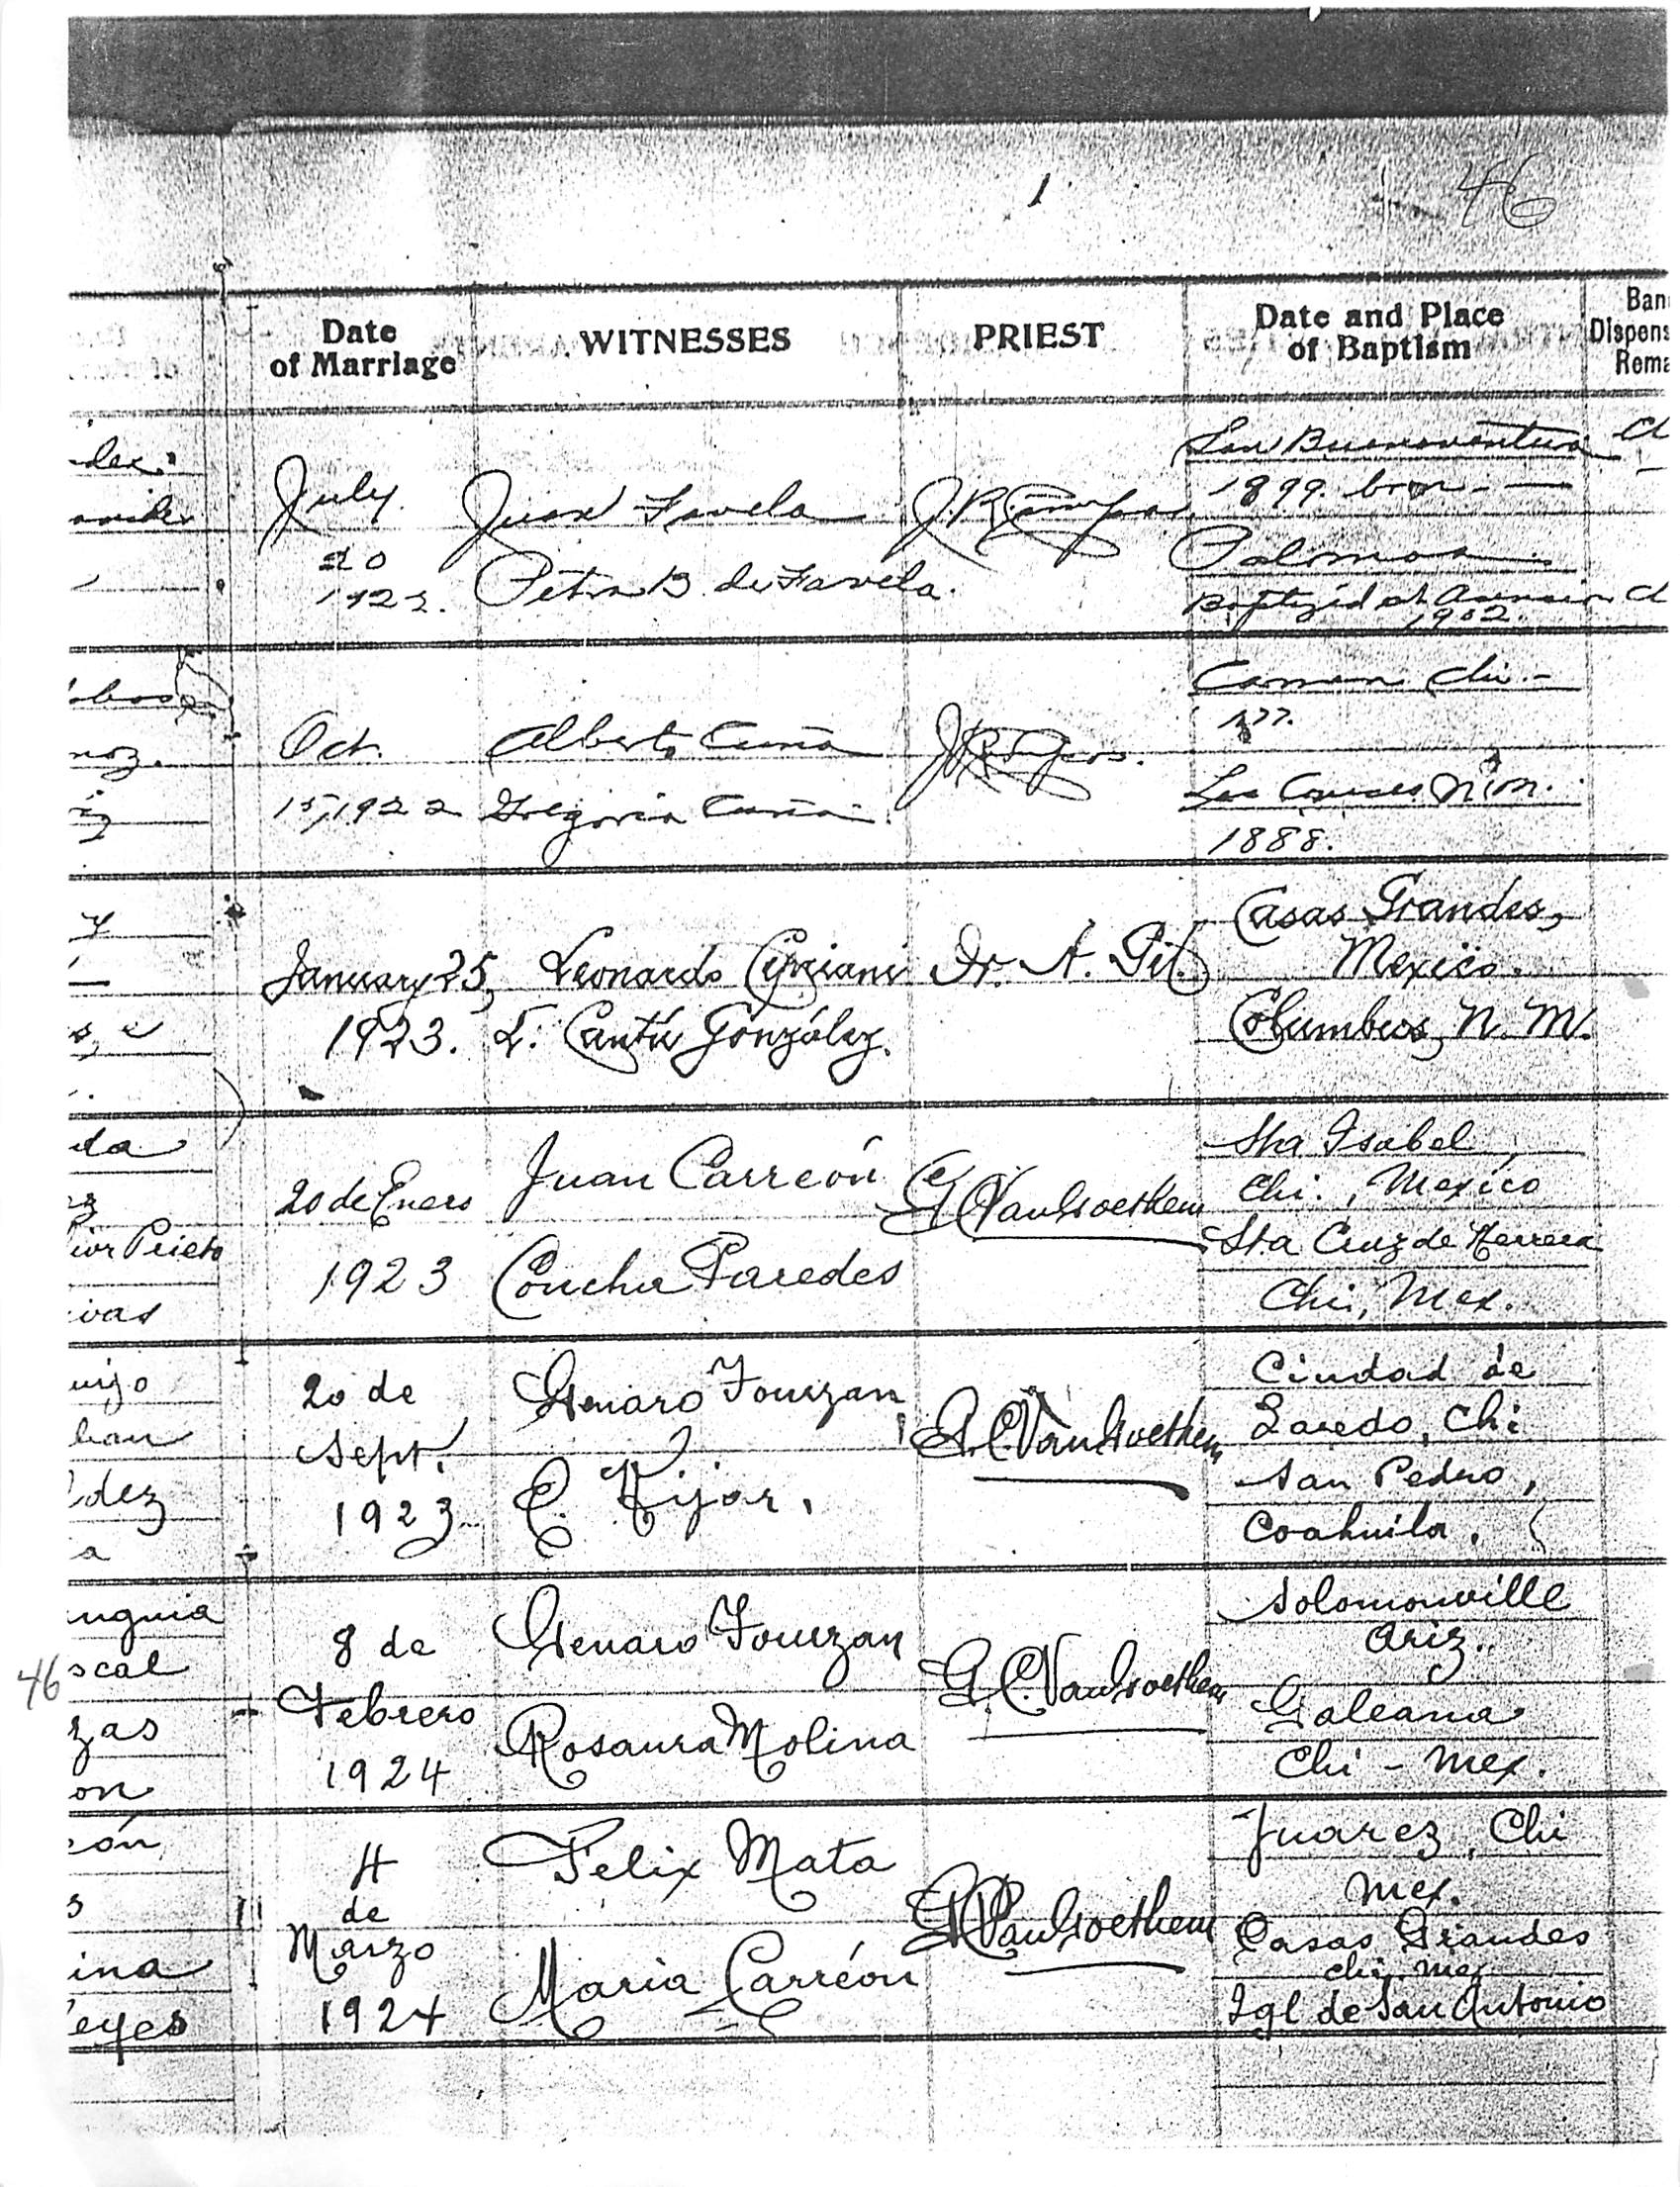 1 46
Date
of Marriage
WITNESSES
PRIEST
Date and Place
of Baptism
Ban
Dispens
Rema
dez.
July.
20
1922.
Juan Favela
Petra B. de Favela.
San Buenaventura
1899. born.
Palomas
Baptized at Ascension
1902.
noz.
Oct.
15, 1922
Alberto
Gregoria
Carmen Chi.
Las Cruces N.M.
1888.
y
January 25,
1923.
Leonardo Cipriani
L. Cantú González.
A. Gil.
Casas Grandes,
Mexico.
Columbus, N. M.
da
Prieto
ivas
20 de Enero
1923
Juan Carreón
Concha Paredes
G C VanGoethem
Sta Isabel,
Chi., Mexico
Sta Cruz de Herrera
Chi, Mex.
uijo
dez
a
20 de
Sept.
1923
Genaro Fourzan
C. Nijar.
G. C. VanGoethem
Ciudad de
Laredo, Chi
San Pedro,
Coahuila.
46
unguia
scal
zas
on
8 de
Febrero
1924
Genaro Fourzan
Rosaura Molina
G. C. VanGoethem
Solomonville
Ariz..
Galeana
Chi - Mex.
eón
s
ina
eyes
4
de
Marzo
1924
Felix Mata
Maria Carreón
G C VanGoethem
Juarez, Chi
Mex.
Casas Grandes
Chi. Mex
Igl de San Antonio